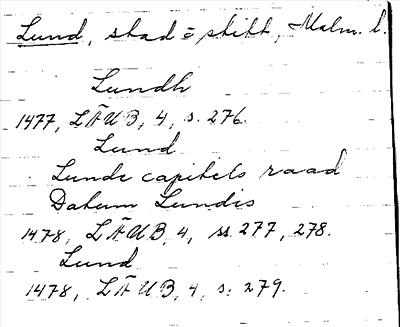 Lund, stad = stift, Malm. l.
Lundh
1477, LÄUB, 4, s. 276.
Lund
Lunde capitels raad
Datum Lundis
1478, LÄUB, 4, ss. 277, 278.
Lund
1478, LÄUB, 4, s. 279.